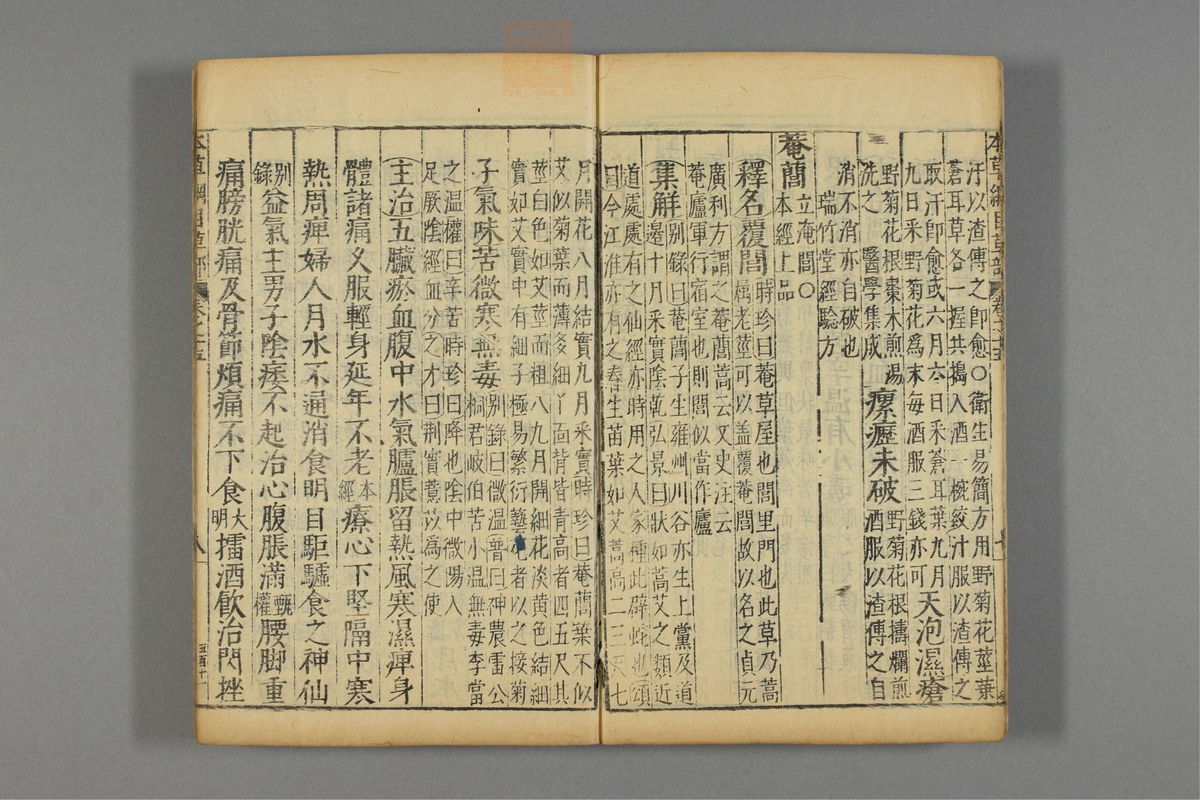 本草綱目草部 卷之十五
汁以渣傅之卽愈○衛生易簡方用野菊花莖葉
蒼耳草各一握共擣入酒一椀絞汁服以渣傅之
取汗卽愈或六月六日采蒼耳葉九月
九日采野菊花爲末每酒服三錢亦可
天泡濕瘡
野菊花根棗木煎湯
洗之 醫學集成
瘰癧未破
野菊花根擣爛煎
酒服以渣傅之自
消不消亦自破也
瑞竹堂經驗方
菴䕡
立淹閭○
本經上品
釋名覆閭
時珍曰菴草屋也閭里門也此草乃蒿
屬老莖可以盖覆菴閭故以名之貞元
廣利方謂之菴䕡蒿云又史注云
菴廬軍行宿室也則閭似當作廬
集解
别錄曰菴䕡子生雍州川谷亦生上黨及道
邊十月采實陰乾弘景曰狀如蒿艾之類近
道處處有之仙經亦時用之人家種此辟蛇也頌
曰今江淮亦有之春生苗葉如艾蒿高二三尺七
月開花八月結實九月采實時珍曰菴䕡葉不似
艾似菊葉而薄多細丫面背皆青高者四五尺其
莖白色如艾莖而粗八九月開細花淡黄色結細
實如艾實中有細子極易繁衍藝花者以之接菊
子氣味苦微寒無毒
别錄曰微温普曰神農雷公
桐君岐伯苦小温無毒李當
之温權曰辛苦時珍曰降也陰中微陽入
足厥陰經血分之才曰荆實薏苡爲之使
主治五臟瘀血腹中水氣臚脹留熱風寒濕痺身
體諸痛久服輕身延年不老
本經
療心下堅隔中寒
熱周痺婦人月水不通消食明目駏驉食之神仙
别錄
益氣主男子陰痿不起治心腹脹滿
甄權
腰脚重
痛膀胱痛及骨節煩痛不下食
大明
擂酒飮治閃挫
本草綱目草部 卷之十五 八